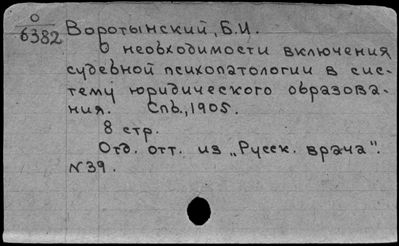 О
6382
Воротынский, Б.И.
О необходимости включения
судебной психопатологии в сис-
тему юридического образова-
ния. Спб., 1905.
8 стр.
Отд. отт. из „Русск. врача".
N39.